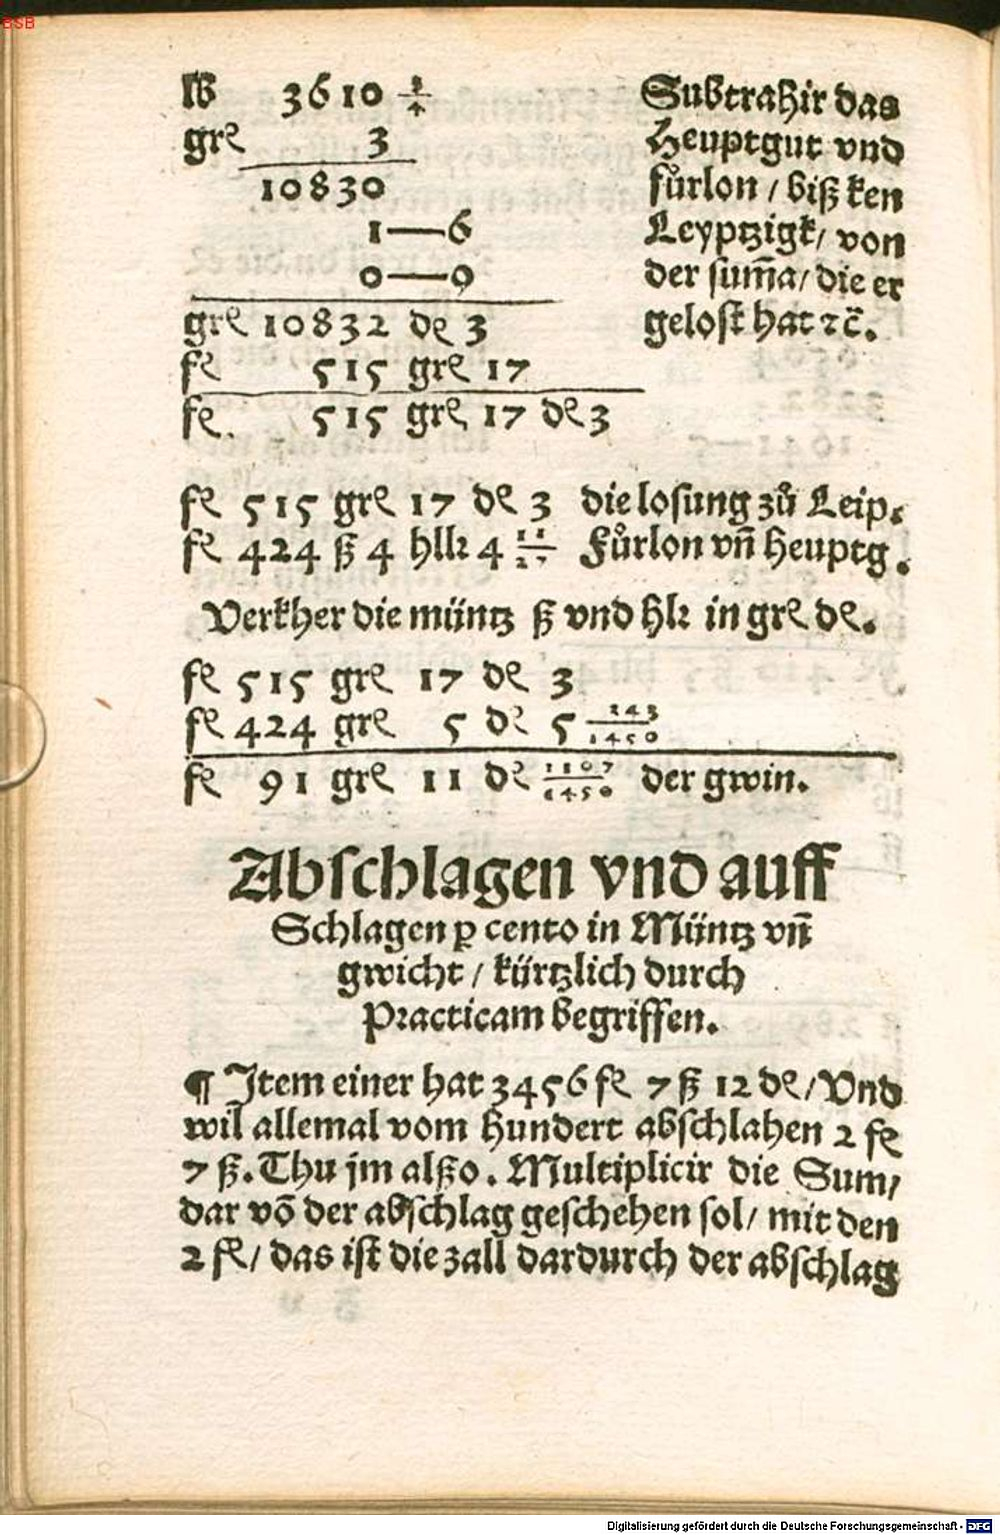 BSB
℔ 3610 3/4
grͤ 3
10830
1—6
0—9
grͤ 10832 dͤ 3
fl 515 grͤ 17
fl. 515 grͤ 17 dͤ 3
Subtrahir das
Heuptgut vnd
fůrlon / biß ken
Leyptzigk / von
der sum̃a / die er
gelost hat ⁊c̃.
fl 515 grͤ 17 dͤ 3 die losung zů Leip.
fl 424 ß 4 hllr 4 Fůrlon vñ Heuptg.
Verkher die müntz ß vnd hlr in grͤ dͤ.
fl 515 grͤ 17 dͤ 3
fl 424 grͤ 5 dͤ 5 243/1450
fl 91 grͤ 11 dͤ 1107/1450 der gwin.
Abschlagen vnd auff
Schlagen ꝑ cento in Müntz vñ
gwicht / kürtzlich durch
Practicam begriffen.
¶ Item einer hat 3456 fl 7 ß 12 dͤ / Vnd
wil allemal vom Hundert abschlahen 2 fl
7 ß. Thu jm alßo. Multiplicir die Sum /
dar võ der abschlag geschehen sol / mit den
2 fl / das ist die zall dardurch der abschlag
Digitalisierung gefördert durch die Deutsche Forschungsgemeinschaft - DFG